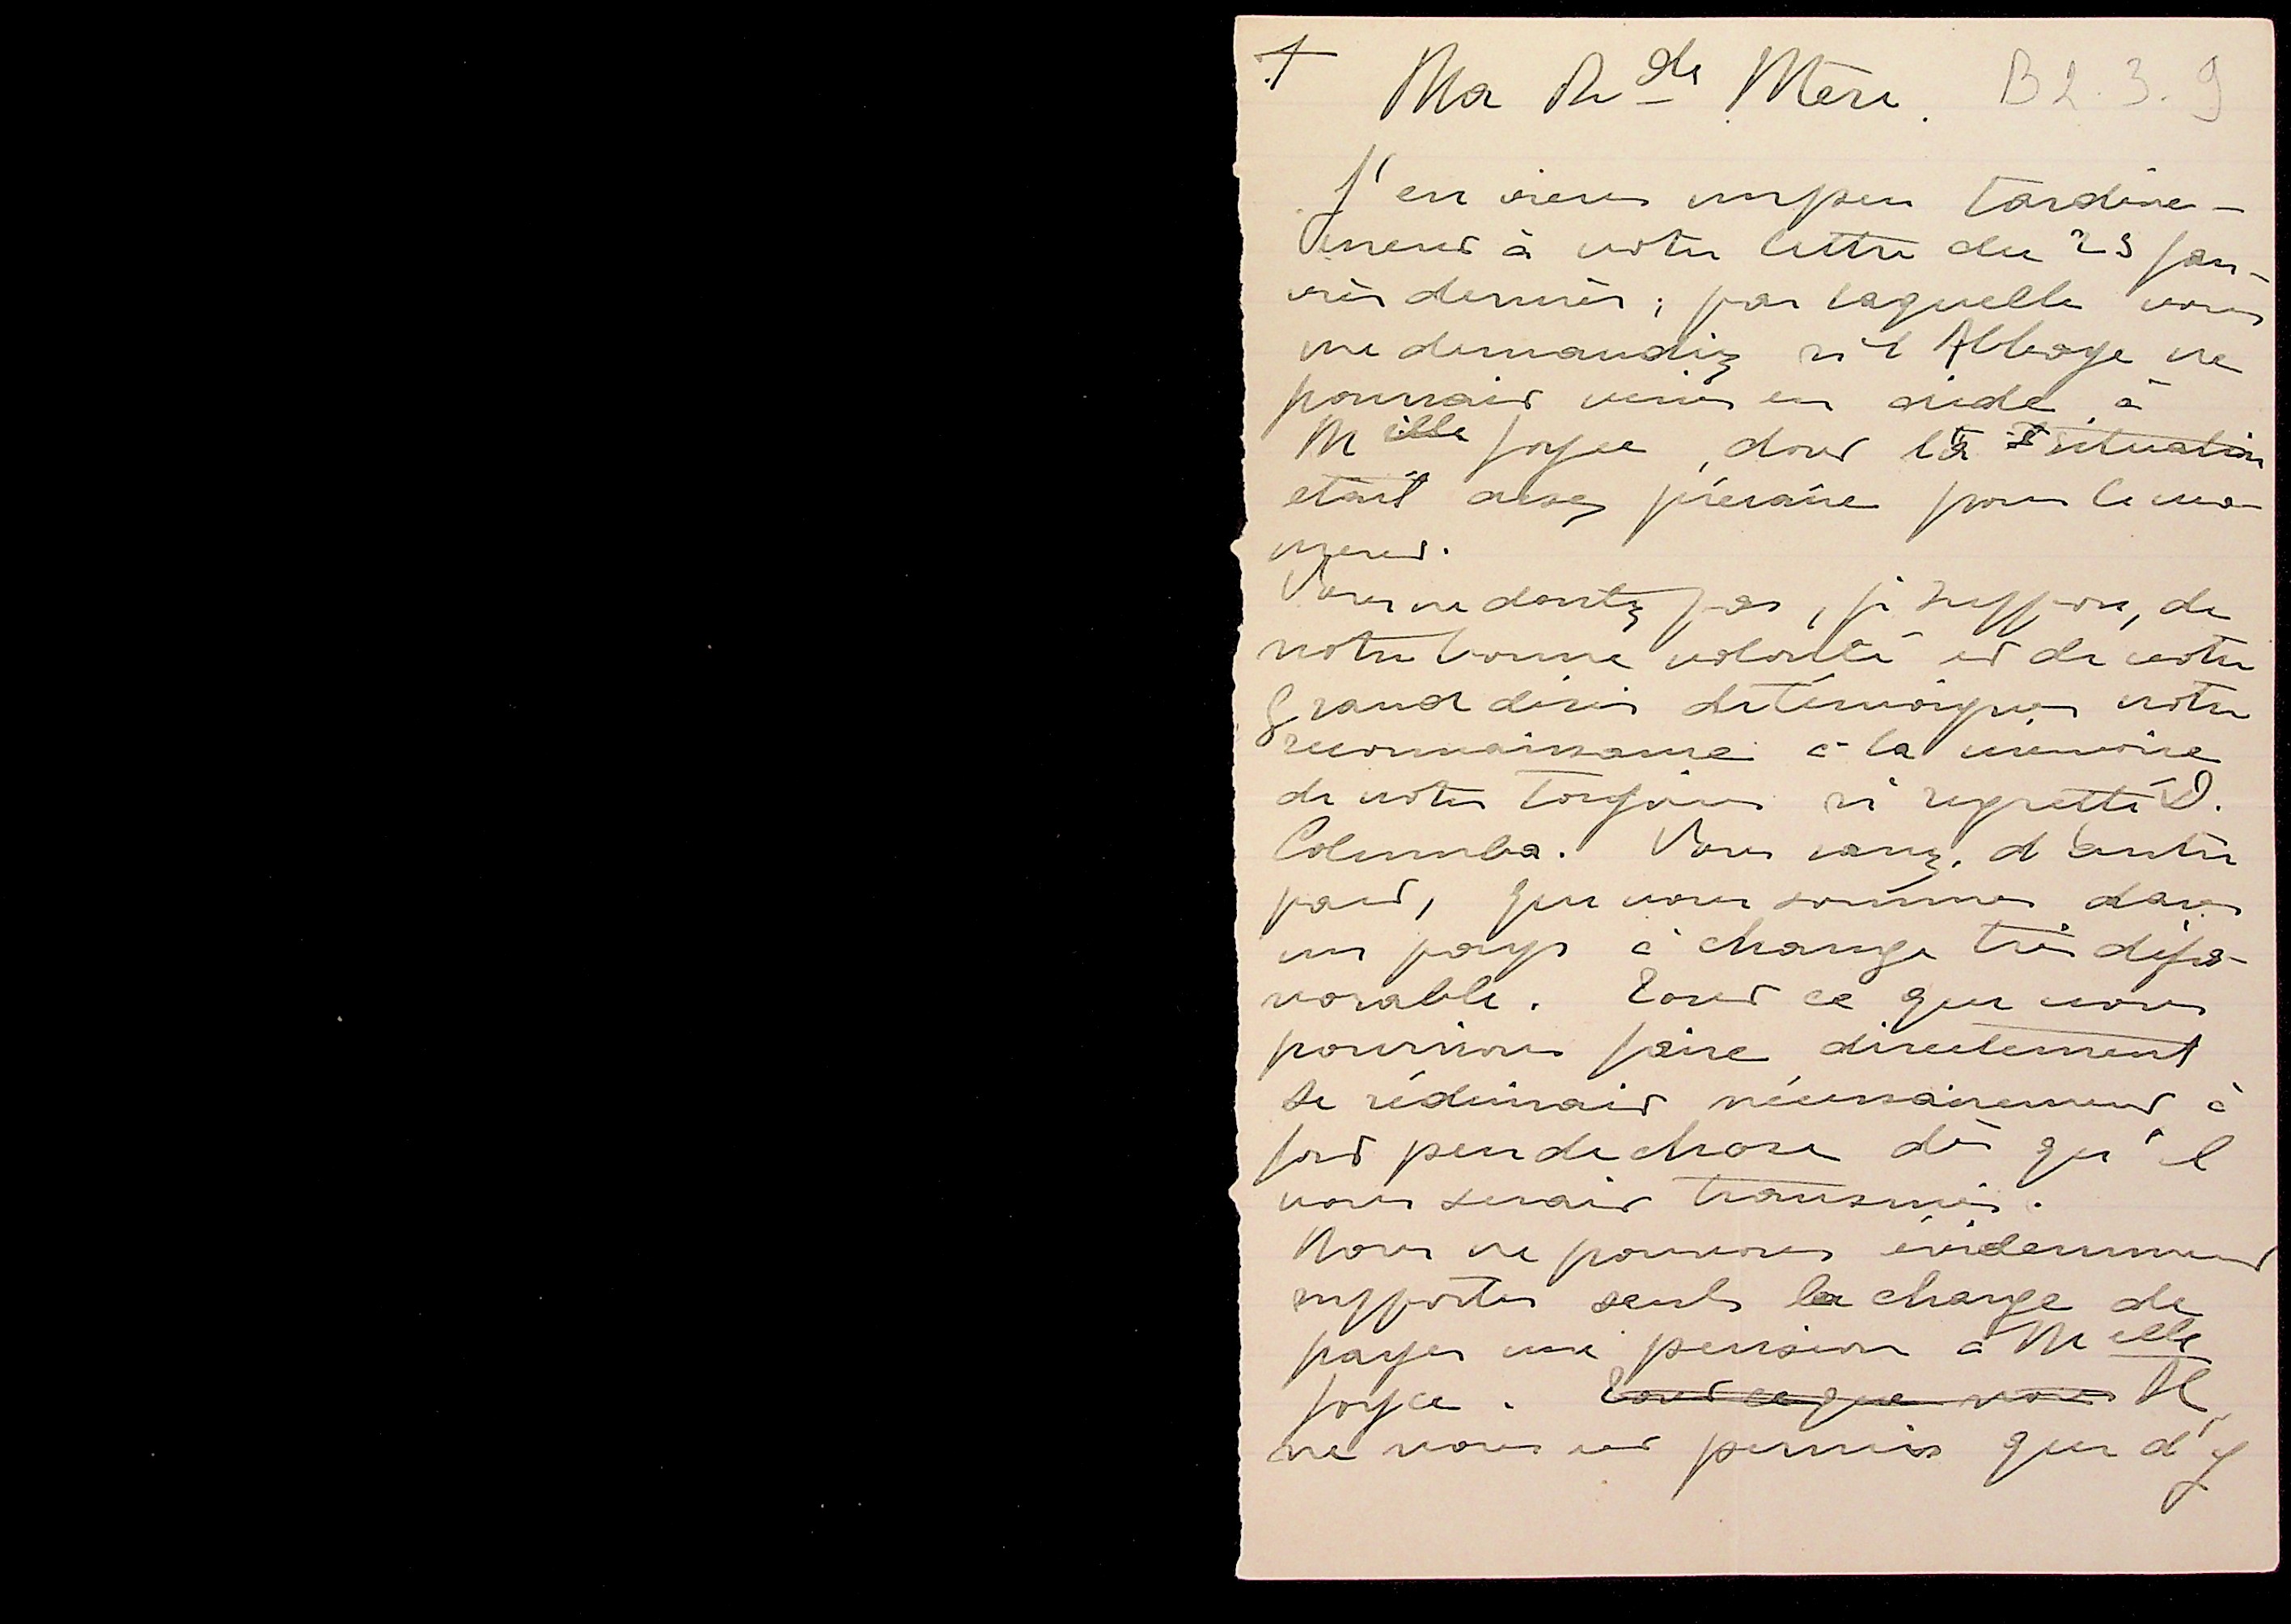 † Ma Rde Mère. B2.3.9
J'en viens un peu tardive-
ment à votre lettre du 23 jan-
vier dernier; par laquelle vous
me demandiez si l'Abbaye ne
pourrait venir en aide à
Melle Joyce, dont la situation
etait assez précaire pour le mo-
ment.
Vous ne doutez pas, je suppose, de
notre bonne volonté et de notre
grand désir de témoigner notre
reconnaissance à la mémoire
de notre toujours si regretté D.
Columba. Vous savez, d'autre
part, que nous sommes dans
un pays à change très défa-
vorable. Tout ce que nous
pourrions faire directement
se réduirait nécessairement à
fort peu de chose dès qu'il
vous serait transmis.
Nous ne pouvons évidemment
supporter seuls la charge de
payer une pension à Melle
Joyce. Tout ce que nous Il
ne nous est permis que d'y